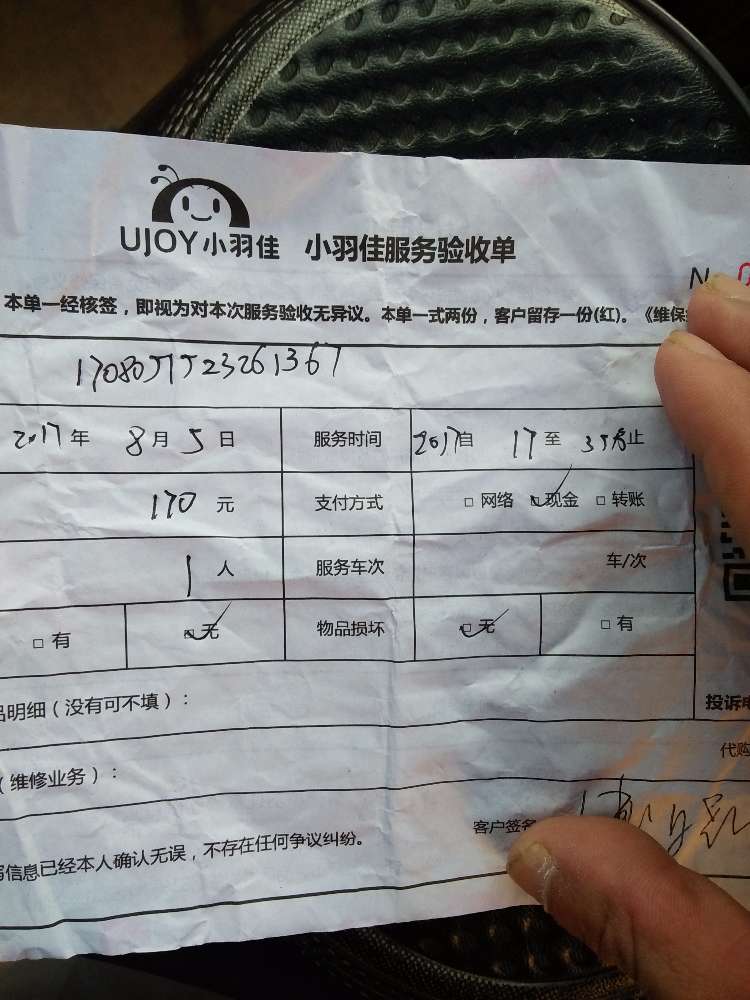 UJOY小羽佳 小羽佳服务验收单
N
本单一经核签，即视为对本次服务验收无异议。本单一式两份，客户留存一份(红)。《维保
2017年 8月5日 服务时间 2017自 17至 止
170 元 支付方式 □ 网络 ☑ 现金 □ 转账
1 人 服务车次 车/次
□ 有 ☑ 无 物品损坏 ☑ 无 □ 有
品明细（没有可不填）：
投诉电
代购
（维修业务）：
客户签名
写信息已经本人确认无误，不存在任何争议纠纷。